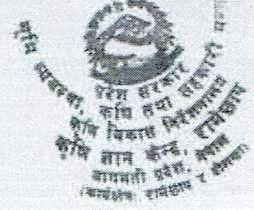 प्रदेश सरकार
भूमि व्यवस्था, कृषि तथा सहकारी
कृषि विकास निर्देशनालय
कृषि ज्ञान केन्द्र, रामेछाप
बागमती प्रदेश, नेपाल
(कार्यक्षेत्रः रामेछाप र दोलखा)